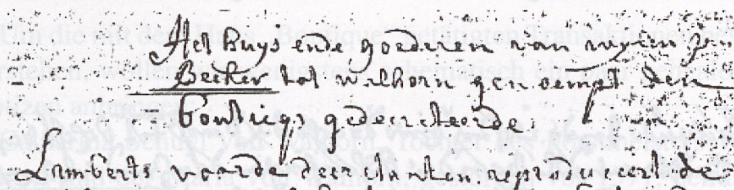 Het huys ende goederen van wylen
Becker tot walhorn genoempt den
gedecreteerde
Lamberts voor de declaranten reproduceert de